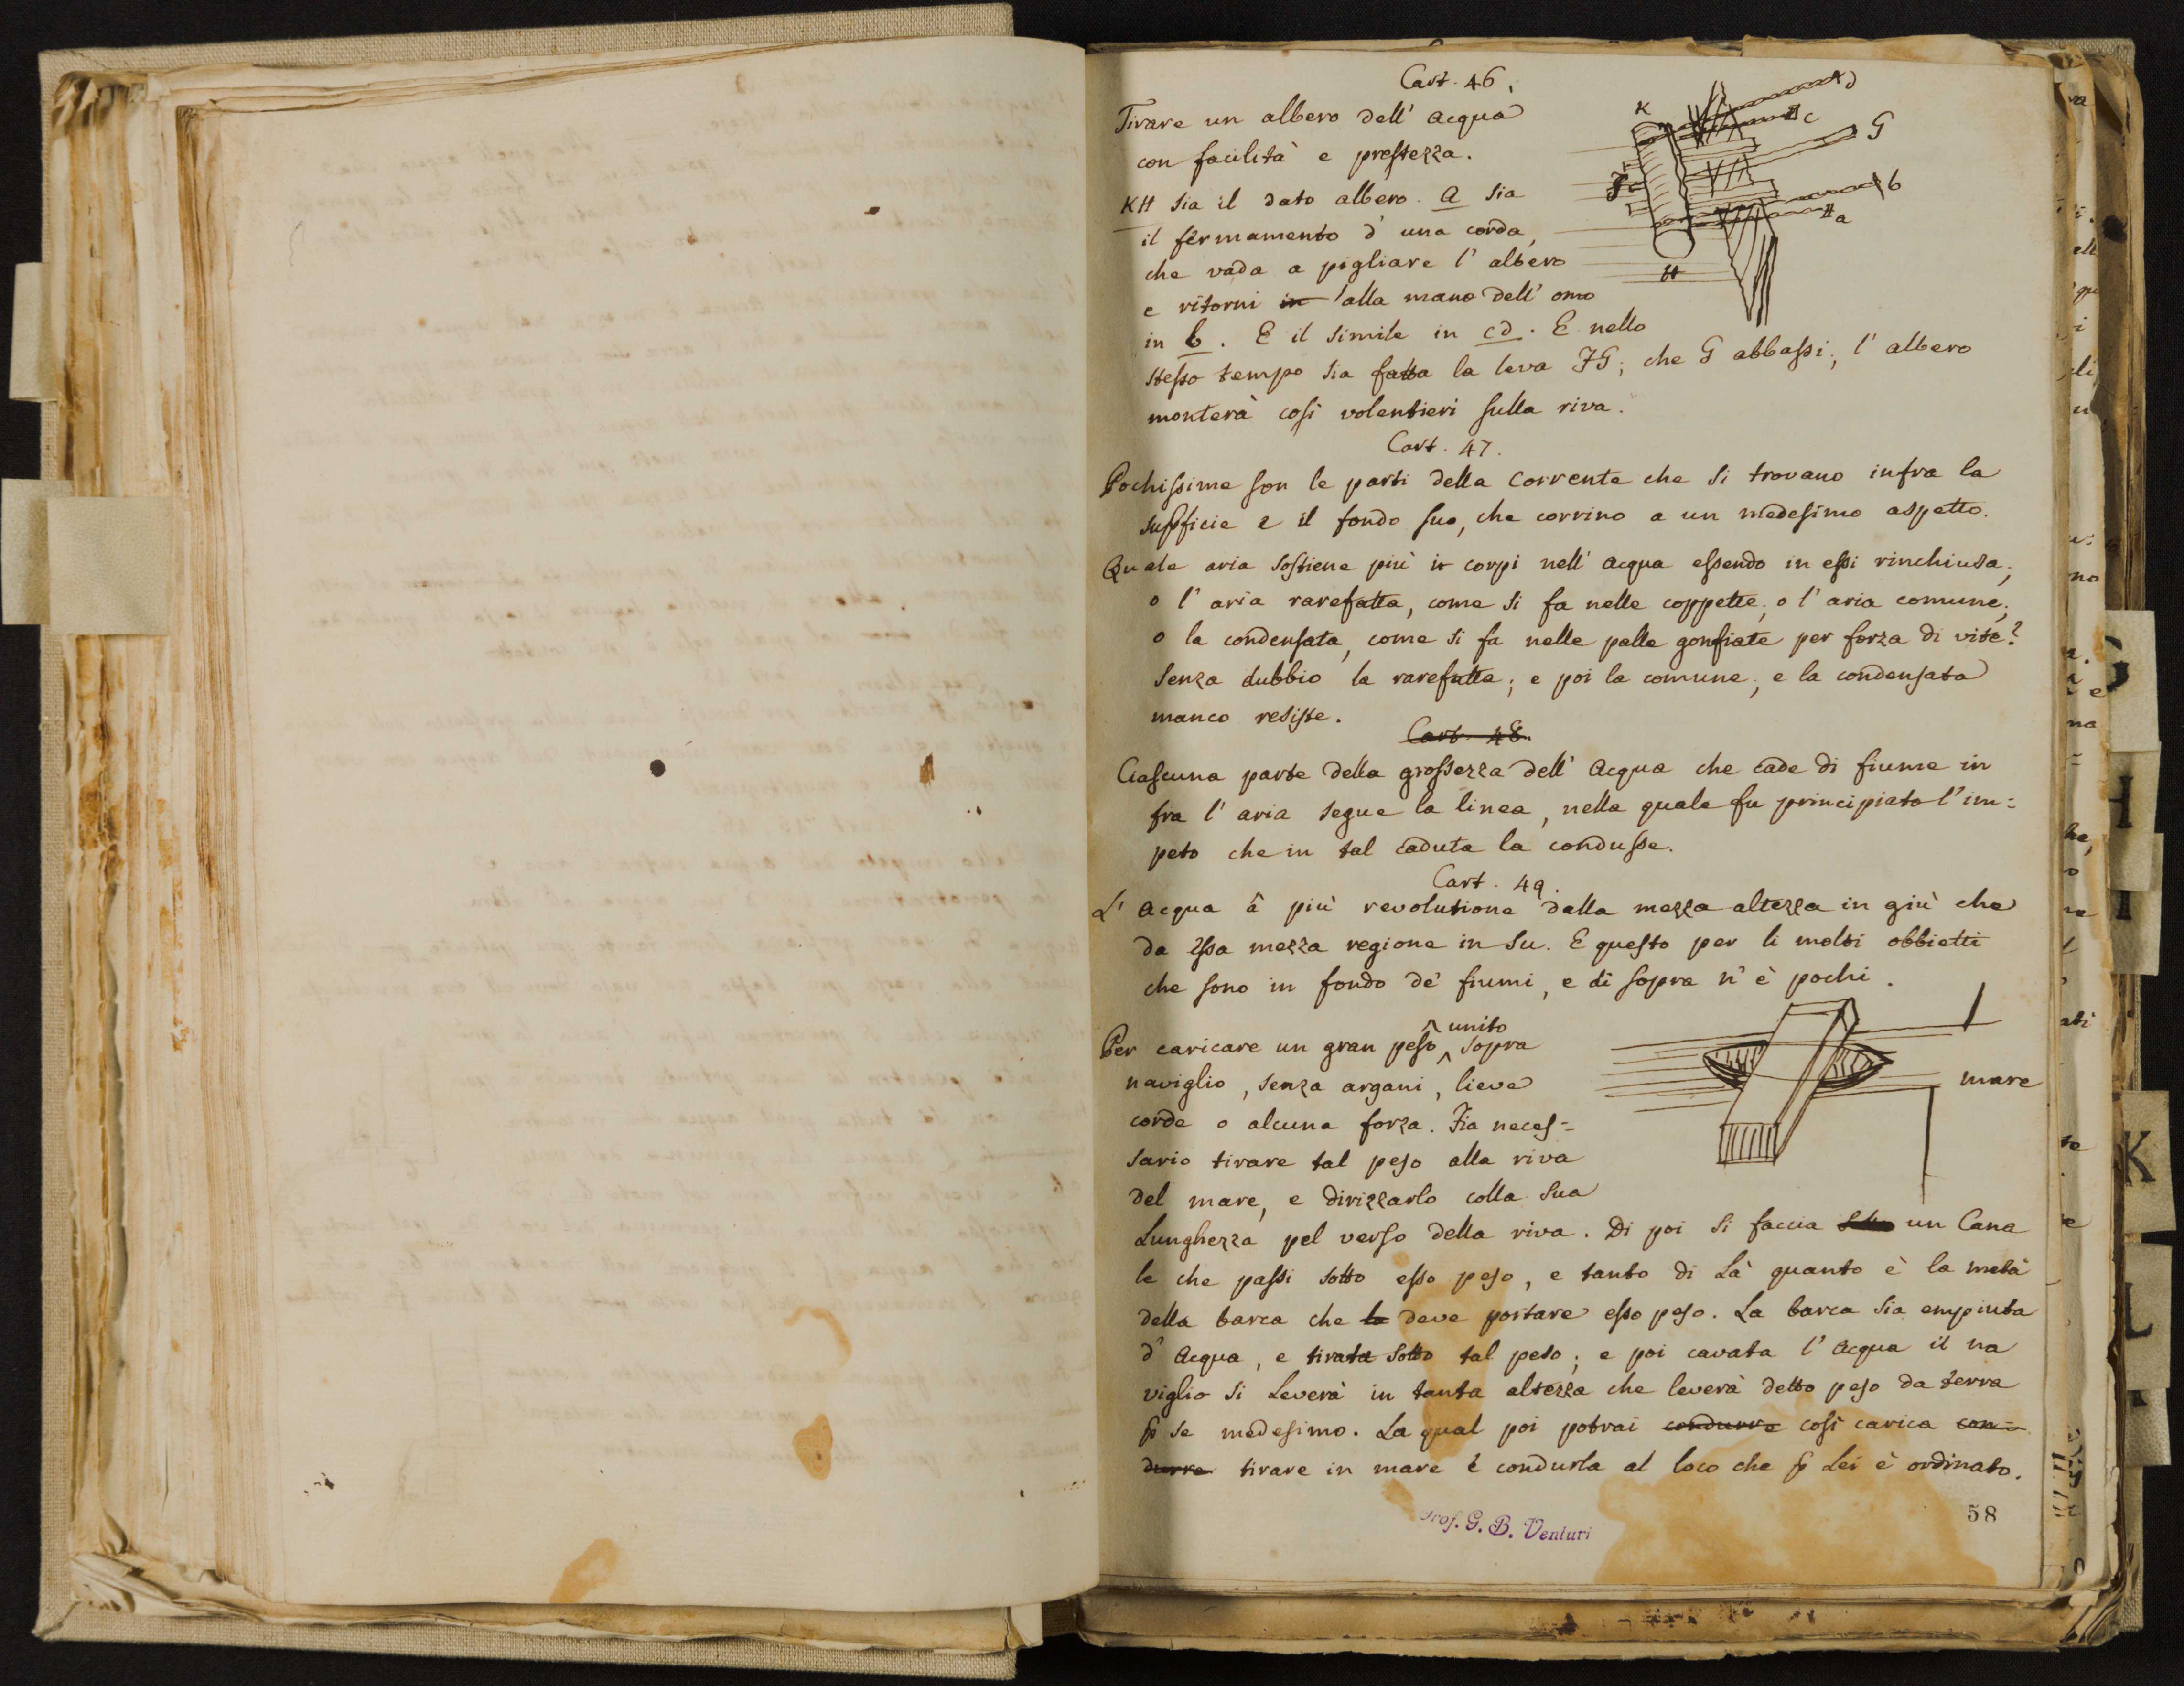 Cart. 46.
Tirare un albero dell' acqua
con facilità e prestezza.
KH sia il dato albero. a sia
il fermamento d' una corda,
che vada a pigliare l' albero
e ritorni in alla mano dell' omo
in b. E il simile in cd. E nello
stesso tempo sia fatta la leva FG; che G abbassi; l' albero
monterà così volentieri sulla riva.
K
d
c
G
F
b
a
H
Cart. 47.
Pochissime son le parti della corrente che si trovano infra la
supficie e il fondo suo, che corrino a un medesimo aspetto.
Quale aria sostiene più corpi nell' acqua essendo in essi rinchiusa;
o l' aria rarefatta, come si fa nelle coppette; o l' aria comune;
o la condensata, come si fa nelle palle gonfiate per forza di vite?
Senza dubbio la rarefatta; e poi la comune; e la condensata
manco resiste.
Cart. 48.
Ciascuna parte della grossezza dell' acqua che cade di fiume in
fra l' aria segue la linea, nella quale fu principiato l' im=
peto che in tal caduta la condusse.
Cart. 49.
L' acqua â più revolutione dalla mezza altezza in giù che
da essa mezza regione in su. E questo per li molti obbietti
che sono in fondo de' fiumi, e di sopra n' è pochi.
Per caricare un gran peso unito sopra
naviglio, senza argani, lieve
corde o alcuna forza. Fia neces=
sario tirare tal peso alla riva
del mare, e dirizzarlo colla sua
mare
Lunghezza pel verso della riva. Di poi si faccia un Cana
le che passi sotto esso peso, e tanto di là quanto è la metà
della barca che la deve portare esso peso. La barca sia empiuta
d' acqua, e tirata sotto tal peso; e poi cavata l' acqua il na
viglio si leverà in tanta altezza che leverà detto peso da terra
p se medesimo. La qual poi potrai condurre così carica con=
durre tirare in mare e condurla al loco che p Lei è ordinato.
58
Prof. G. B. Venturi
K
L